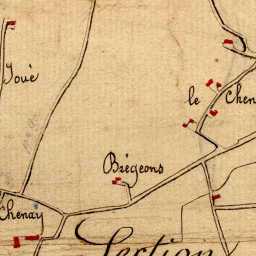 Joué
le Chen
Brégeons
Chenay
Section